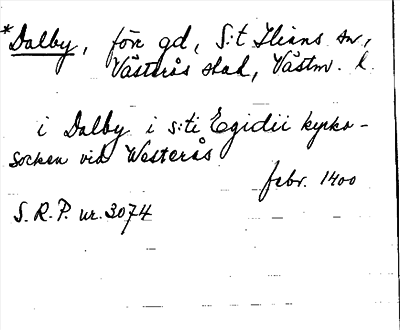 *Dalby, förr gd, S:t Ilians sn,
Västerås stad, Västm. l.
i Dalby i s:ti Egidii kyrko-
socken vid Westerås
febr. 1400
S.R.P. nr. 3074